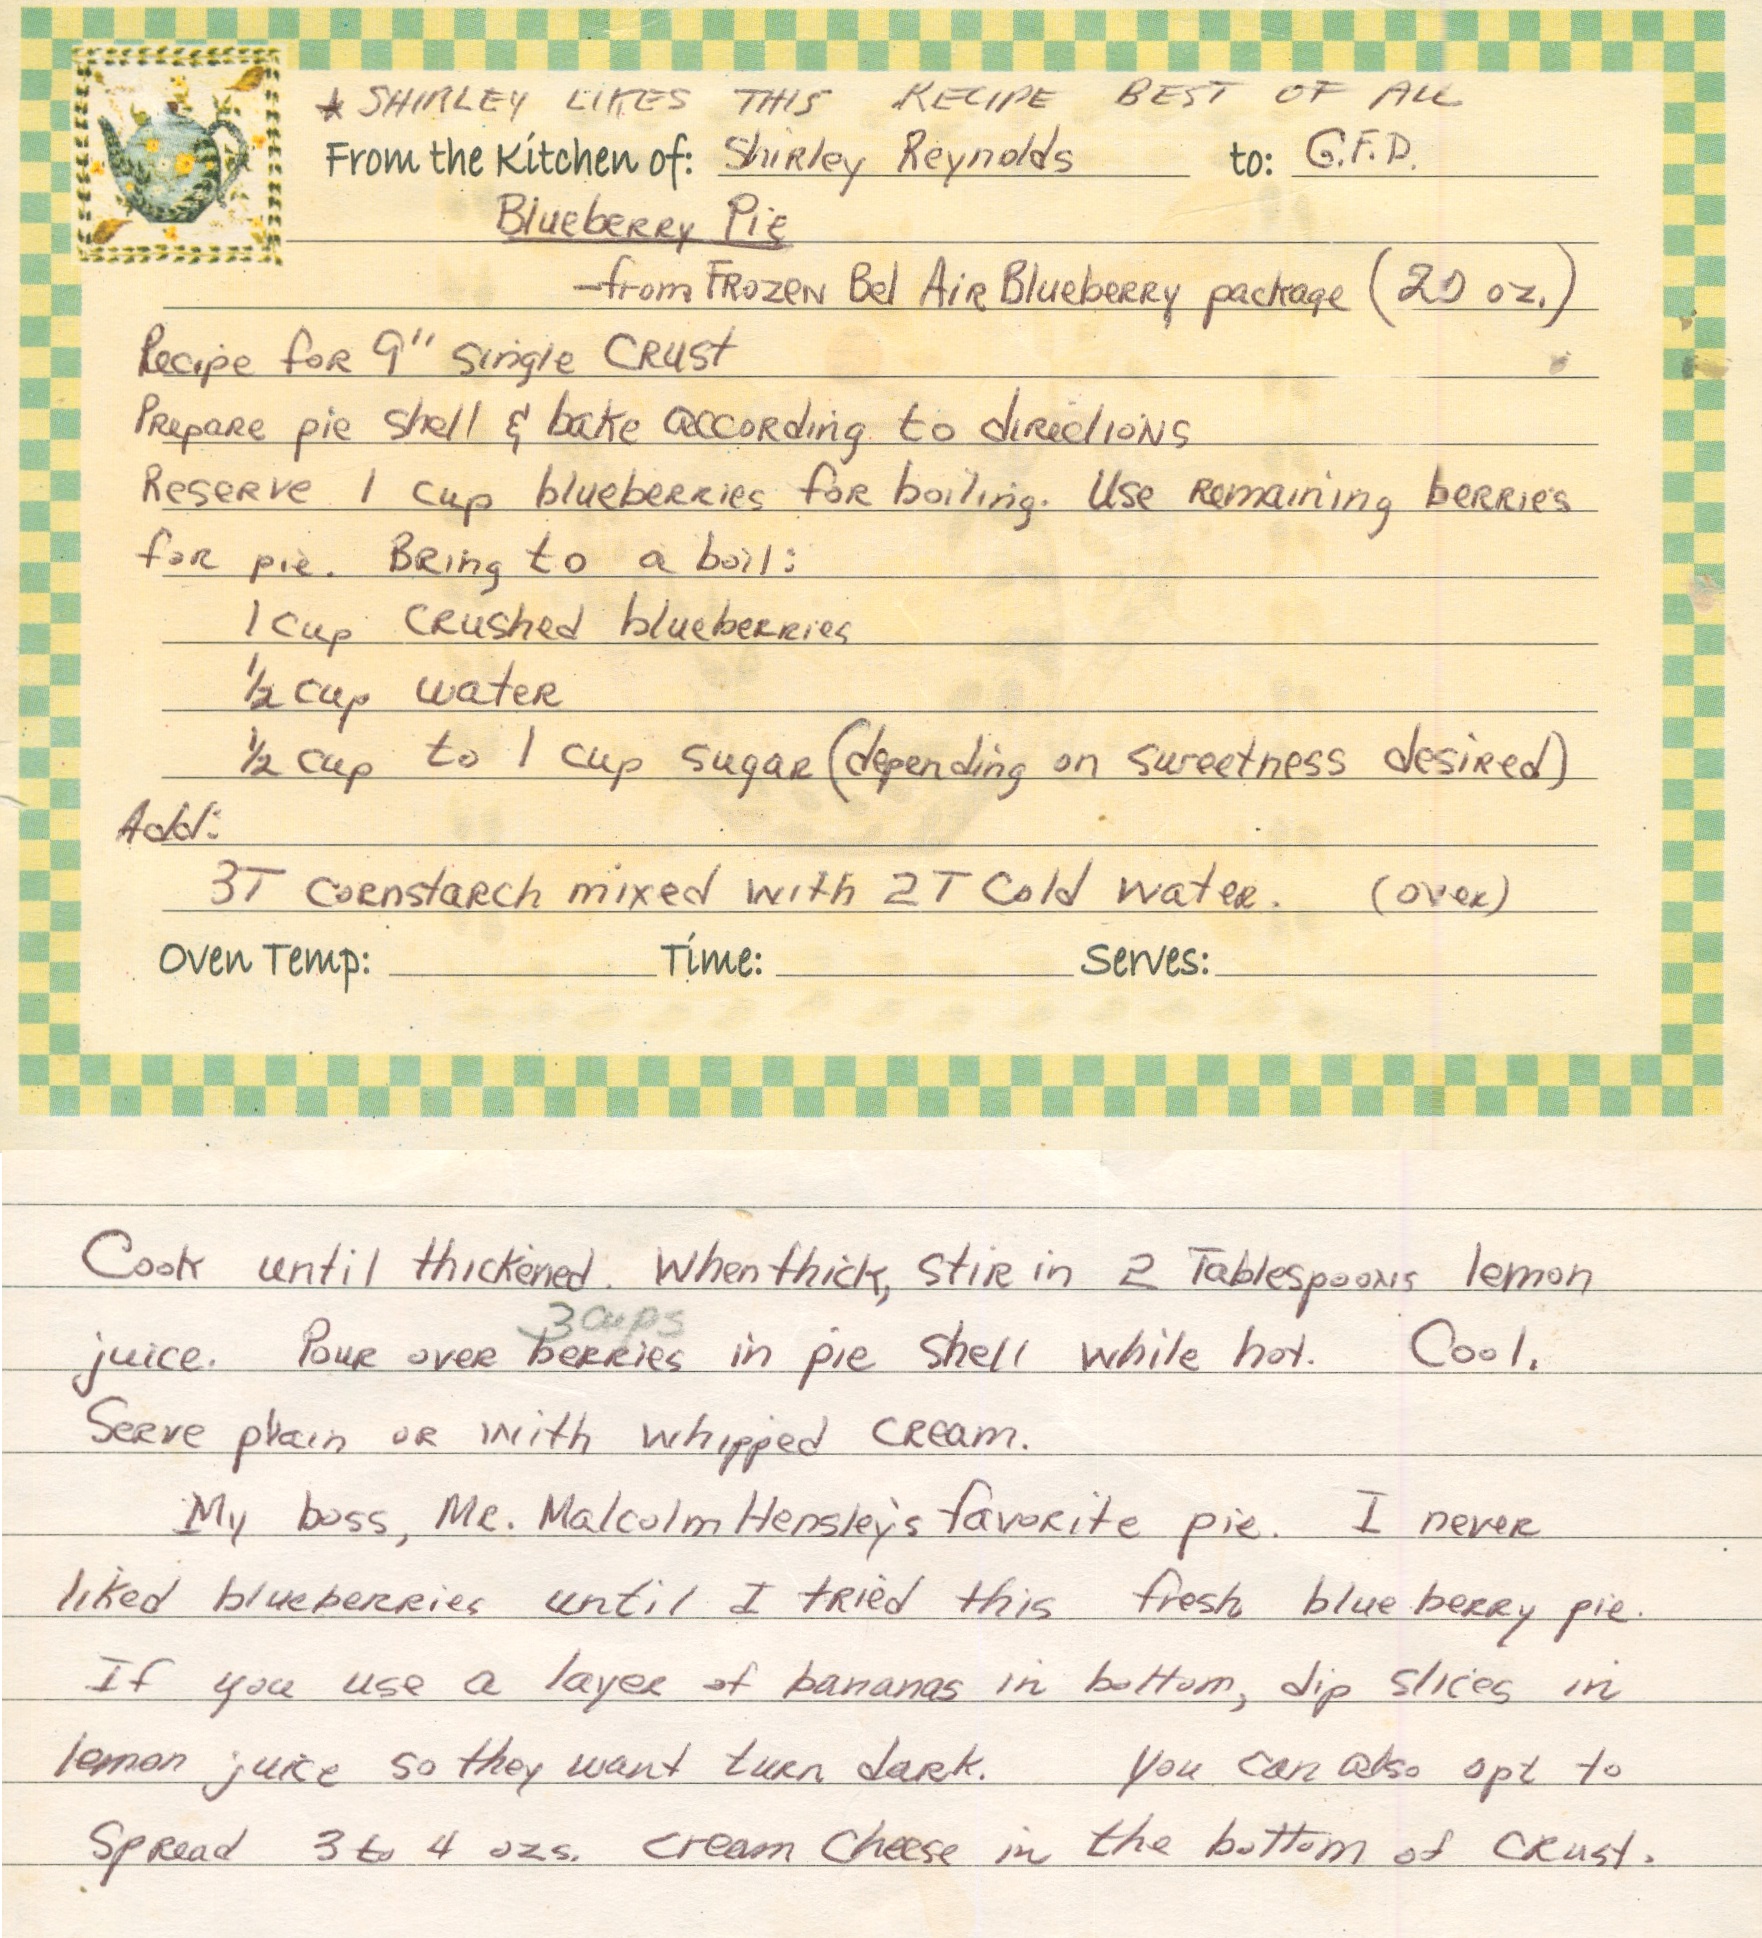 * SHIRLEY LIKES THIS RECIPE BEST OF ALL
From the Kitchen of: Shirley Reynolds to: G.F.D.
Blueberry Pie
-from Frozen Bel Air Blueberry package (20 oz.)
Recipe for 9" single crust
Prepare pie shell & bake according to directions
Reserve 1 cup blueberries for boiling. Use remaining berries
for pie. Bring to a boil:
1 cup crushed blueberries
1/2 cup water
1/2 cup to 1 cup sugar (depending on sweetness desired)
Add:
3T cornstarch mixed with 2T cold water. (over)
Oven Temp: Time: Serves:
Cook until thickened. When thick, stir in 2 Tablespoons lemon
3 cups
juice. Pour over berries in pie shell while hot. Cool.
Serve plain or with whipped cream.
My boss, Mr. Malcolm Hensley's favorite pie. I never
liked blueberries until I tried this fresh blueberry pie.
If you use a layer of bananas in bottom, dip slices in
lemon juice so they want turn dark. You can also opt to
Spread 3 to 4 ozs. cream cheese in the bottom of crust.